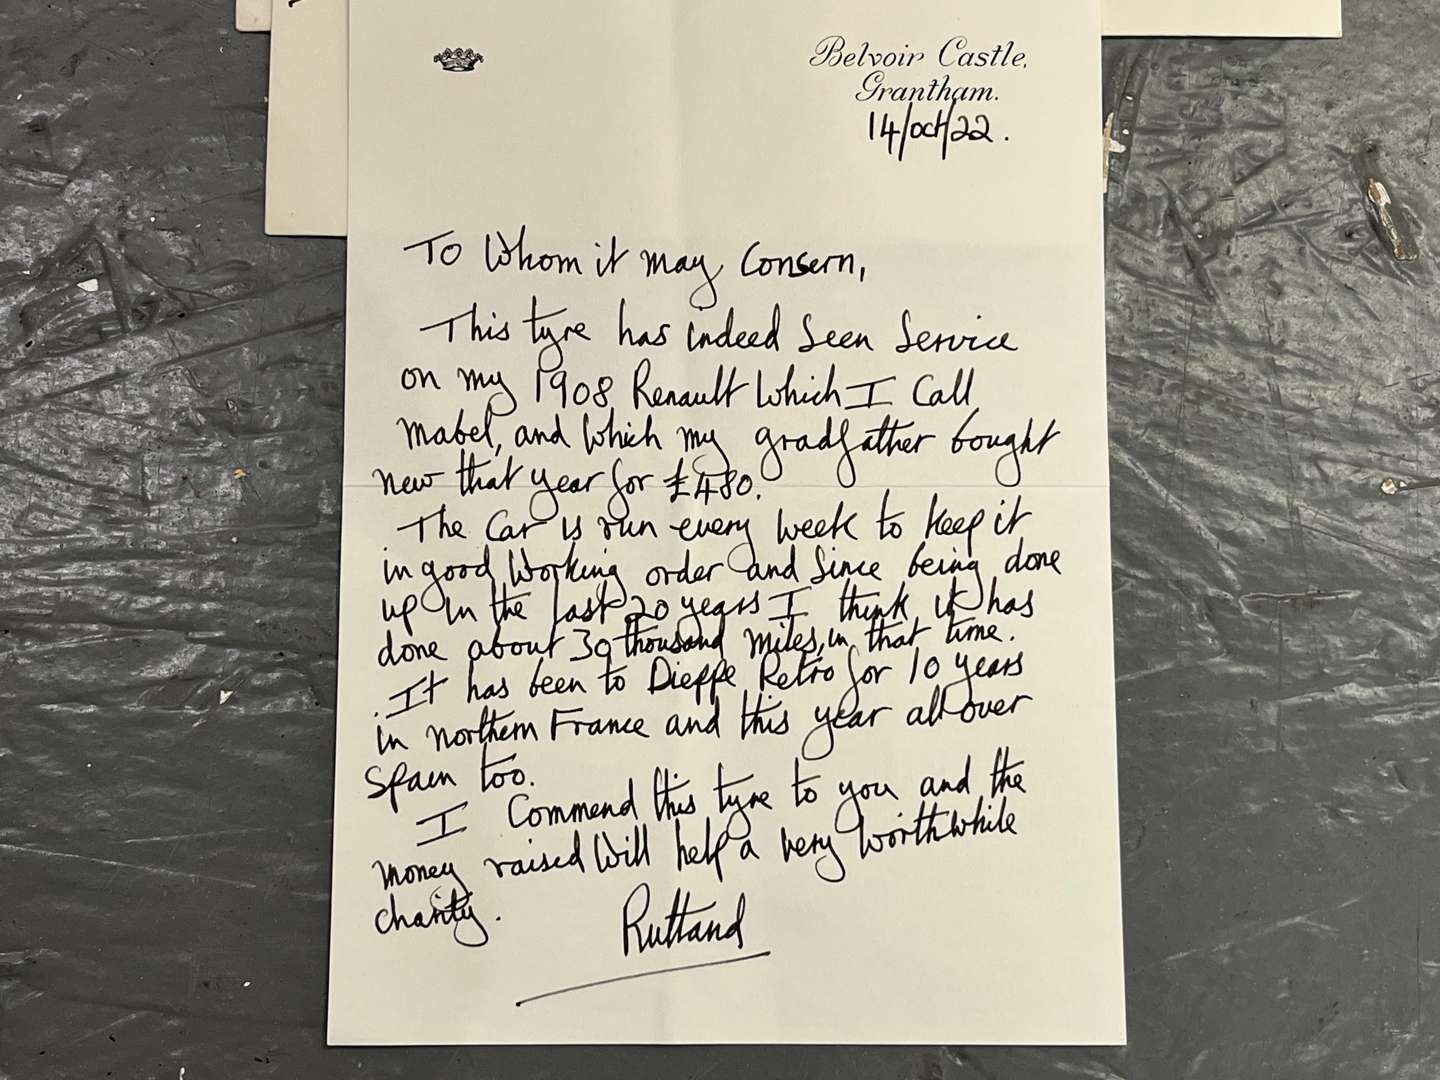 Belvoir Castle,
Grantham.
14/oct/22.
To Whom it may Concern,
This tyre has indeed seen service
on my 1908 Renault which I call
Mabel, and which my gradfather bought
new that year for £480.
The Car is run every week to keep it
in good working order and since being done
up in the last 20 years I think it has
done about 30 thousand miles, in that time.
It has been to Dieppe Retro for 10 years
in northern France and this year all over
Spain too.
I Commend this tyre to you and the
money raised will help a very worthwhile
charity.
Rutland